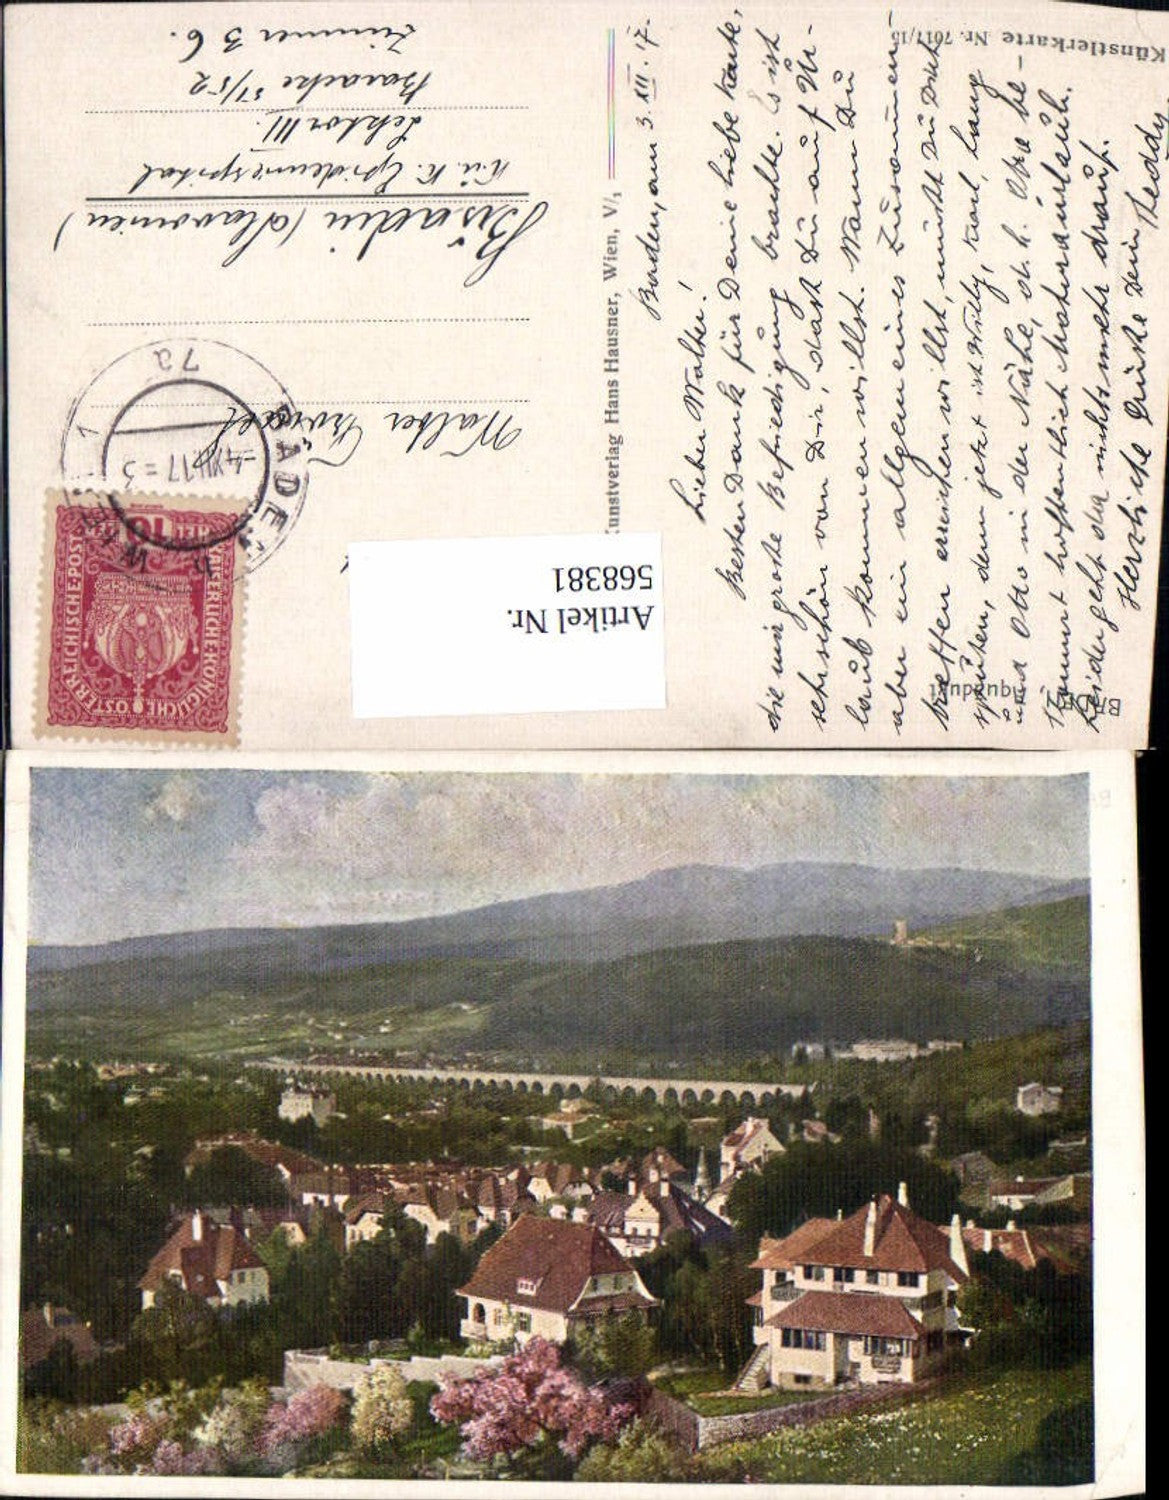 Künstlerkarte Nr. 7617/15
BADEN, Aquädukt
Kunstverlag Hans Hausner, Wien, V/1
Baden, am 3. XII. 17.
Lieber Walter!
Besten Dank für Deine liebe Karte,
die mir große Befriedigung brachte. Es ist
sehr schön von Dir, daß Du auf Ur-
laub kommen willst. Wann Du
aber ein allgemeines Zusammen-
treffen erreichen willst, mußt Du Dich
sputen, denn jetzt ist Willy, Karl, Lang
und Otto in der Nähe, d. h. Otto be-
kommt hoffentlich Maturaurlaub.
Leider geht da nichts mehr drauf.
Herzliche Grüße Dein Theddy
KAISERLICHE KÖNIGLICHE ÖSTERREICHISCHE POST
10 HELLER
BADEN
WIEN
-4.XII.17=3
7a
Walter
(Slavonien)
K. u. K. Epidemiespital
Sektor III.
Baracke 51/52
Zimmer 36.
Artikel Nr.
568381